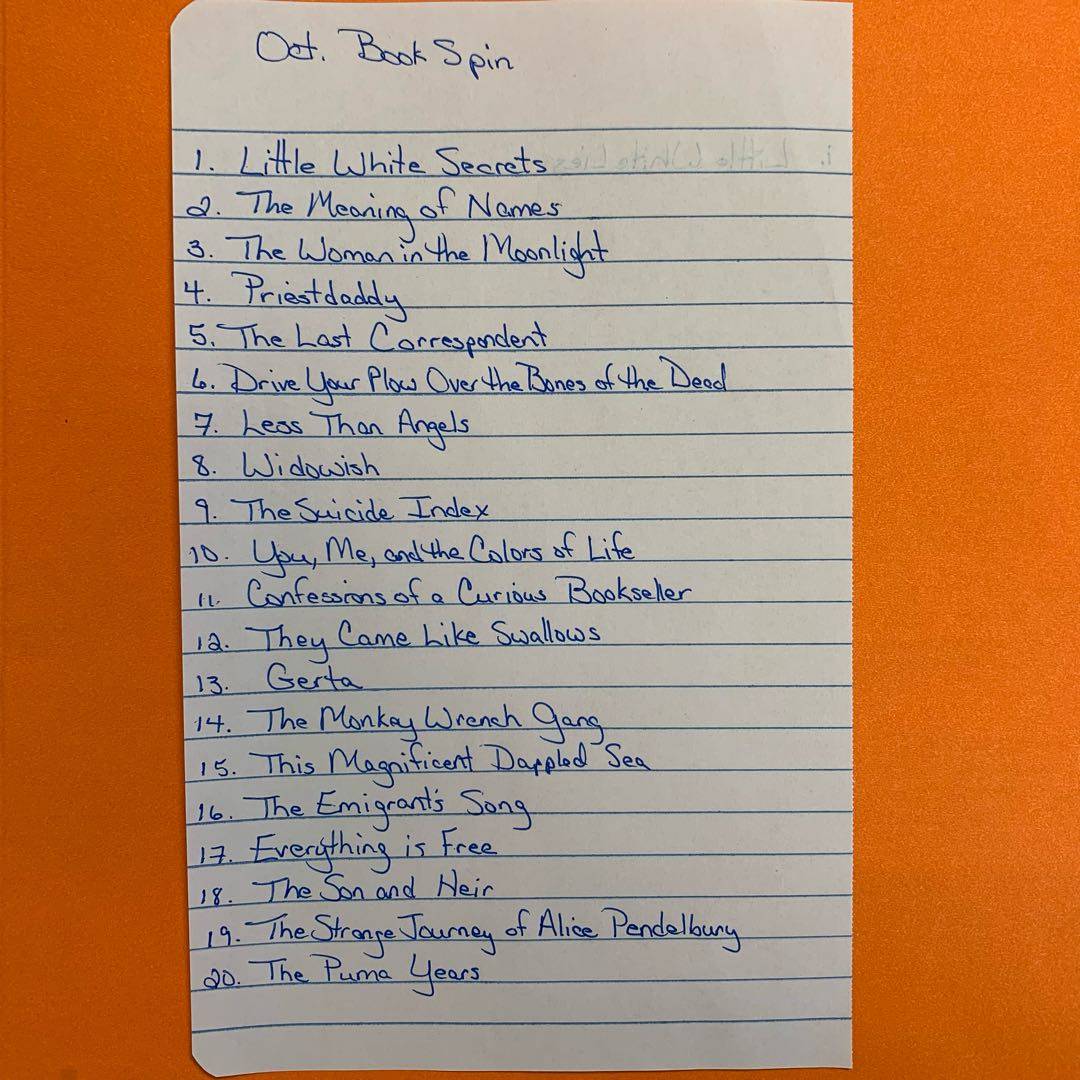 Oct. Book Spin
1. Little White Secrets
2. The Meaning of Names
3. The Woman in the Moonlight
4. Priestdaddy
5. The Last Correspondent
6. Drive Your Plow Over the Bones of the Dead
7. Less Than Angels
8. Widowish
9. The Suicide Index
10. You, Me, and the Colors of Life
11. Confessions of a Curious Bookseller
12. They Came Like Swallows
13. Gerta
14. The Monkey Wrench Gang
15. This Magnificent Dappled Sea
16. The Emigrant's Song
17. Everything is Free
18. The Son and Heir
19. The Strange Journey of Alice Pendelbury
20. The Puma Years